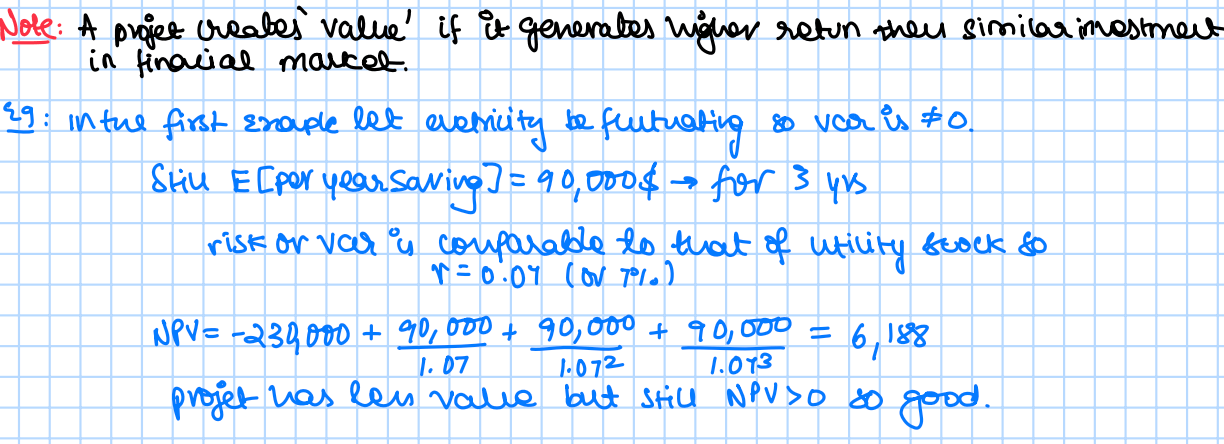 Note: A projet creates 'value' if it generates higher retun then similar investment
in finacial market.
Eg: in the first exaple let eletricity be flutuating so var is ≠0.
Still E[per year saving] = 90,000$ → for 3 yrs
risk or var is comparable to that of utility stock so
r = 0.07 (or 7%.)
NPV = -230,000 + 90,000/1.07 + 90,000/1.07² + 90,000/1.07³ = 6,188
projet has less value but still NPV>0 so good.